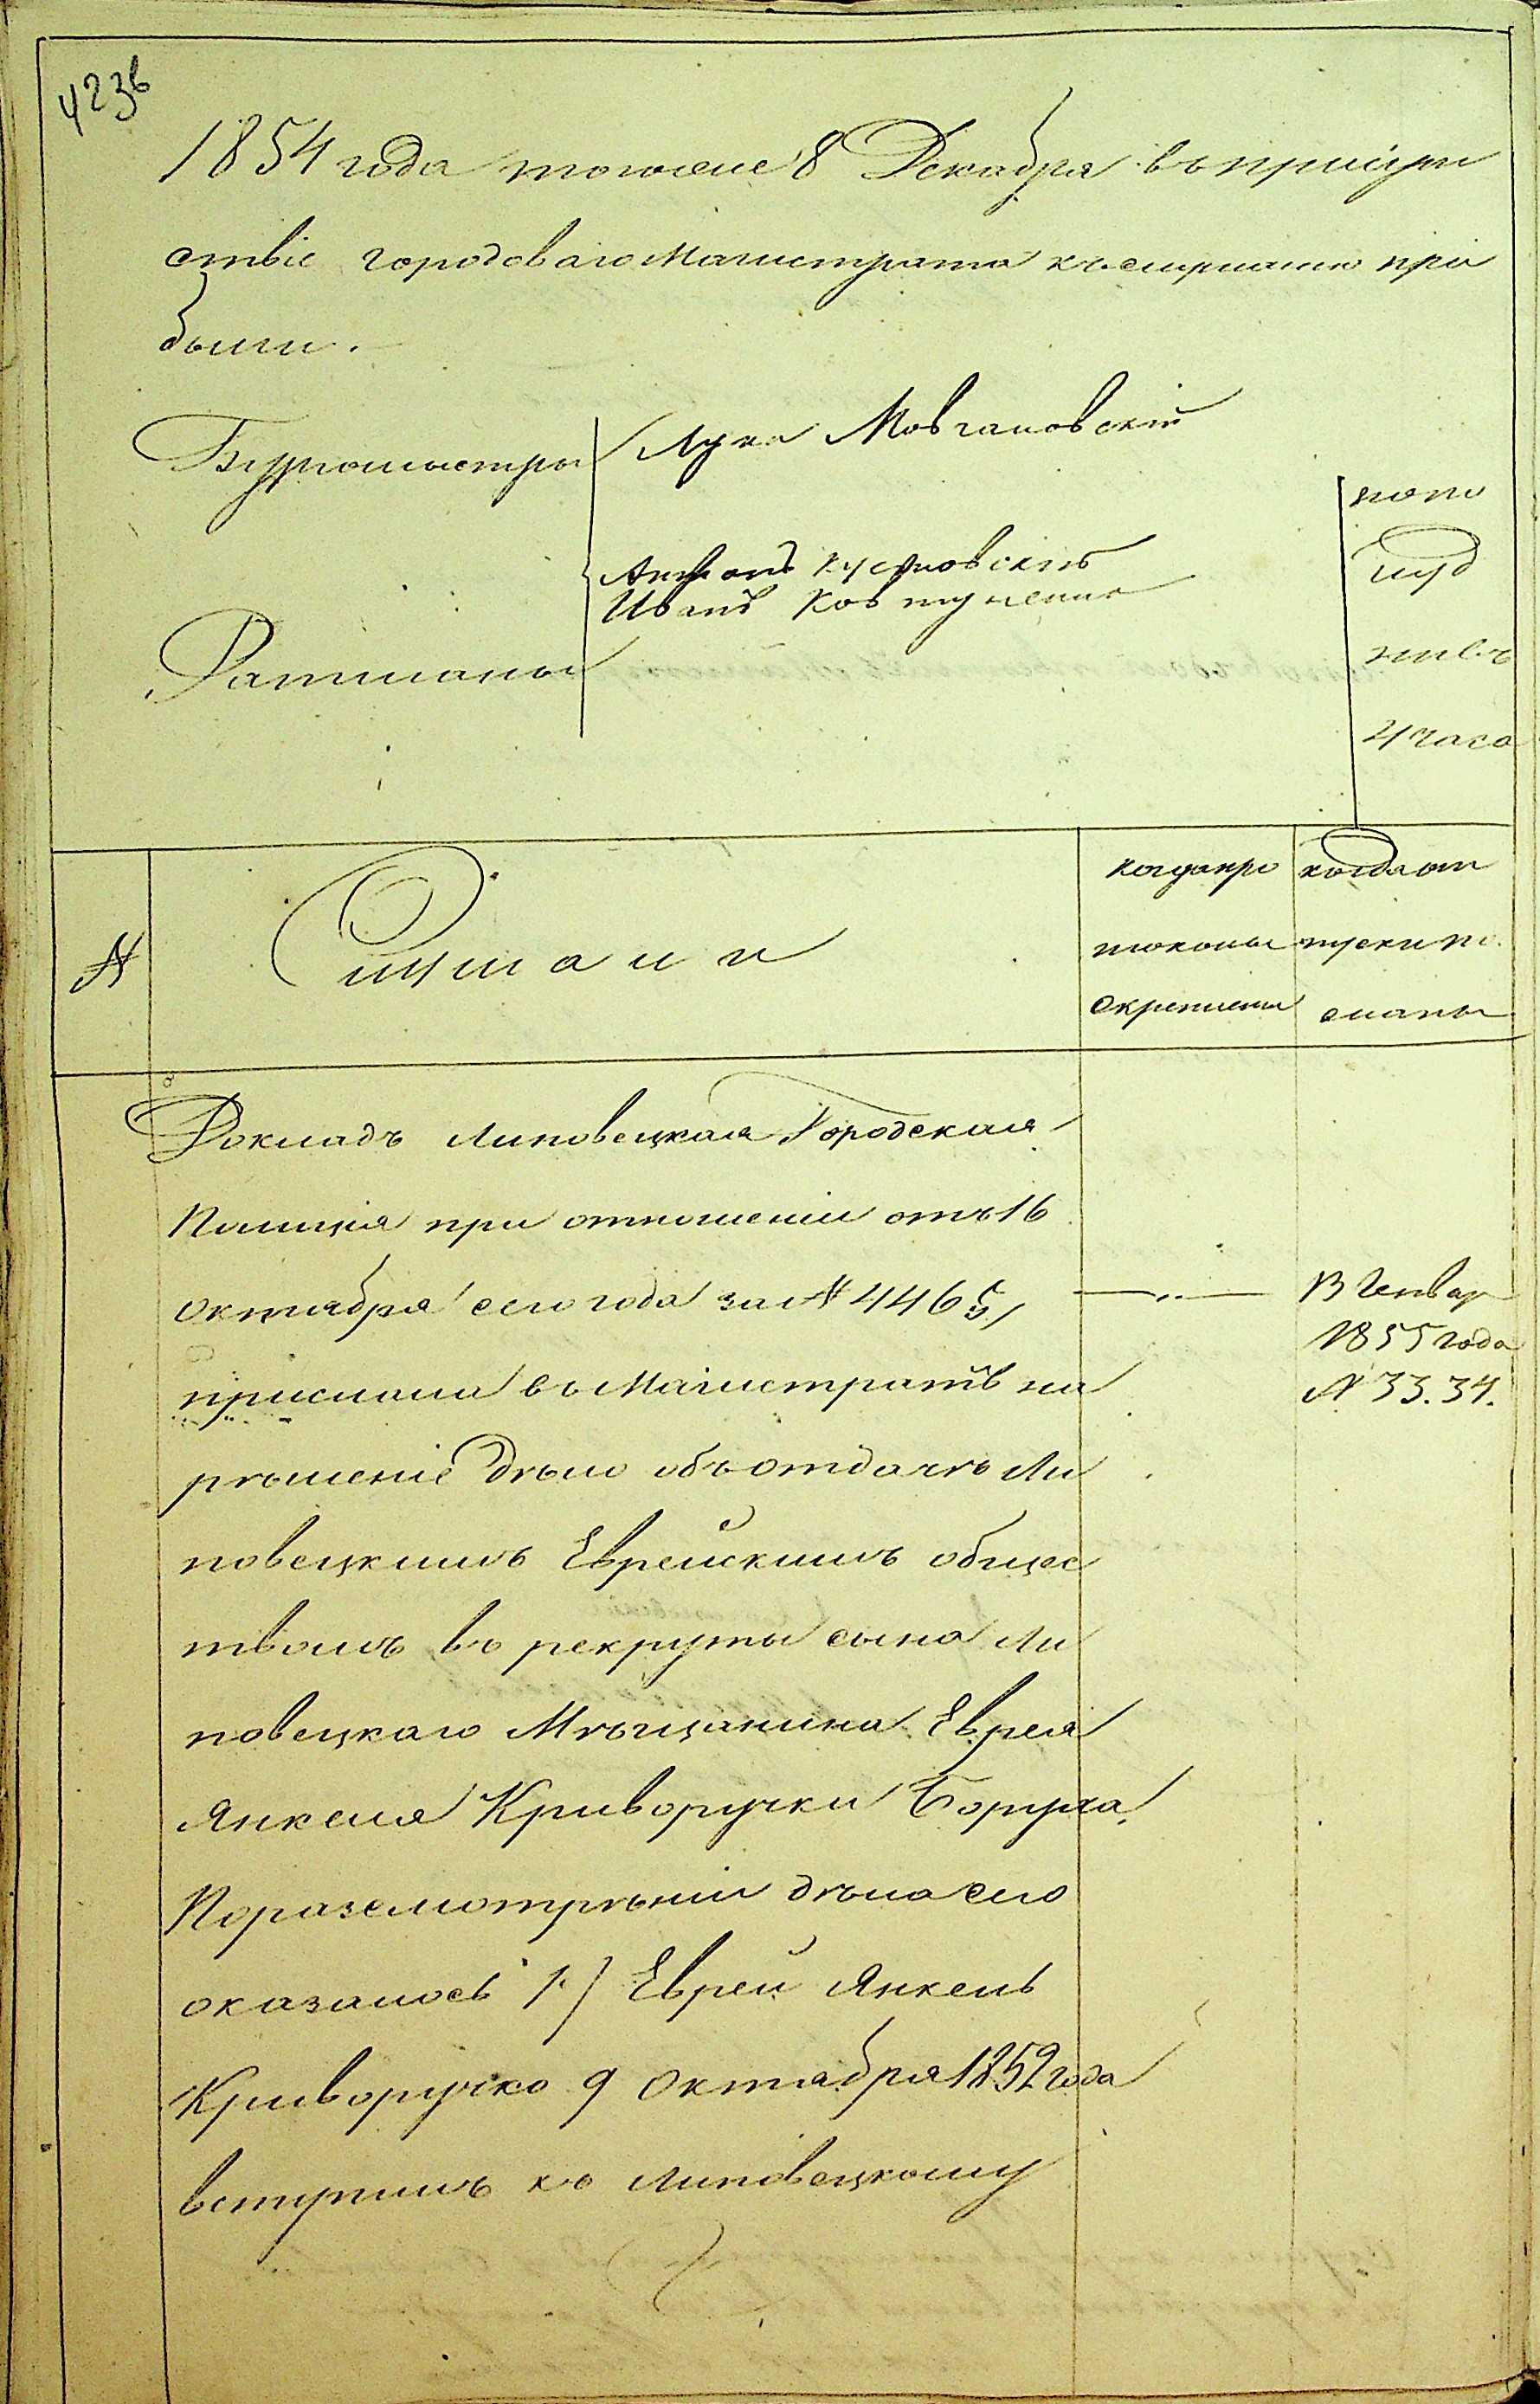 423в
1854 года тогоже 8 Декабря въ присут
ствіе городоваго Магистрата къ слушанію при
были.
Бургомистры Лука Мовчановскій
попо
Антонъ Кусяновскій
луд
Иванъ Ковтуненко
Ратманы
ни въ
4 часа
№
Слушали
когда про
токолы
скреплены
когда от
пуски по
сланы
Докладъ Липовецкая Городская
Полиція при отношеніи отъ 16
Октября сего года за № 4465,
прислала въ Магистратъ на
рѣшеніе дѣло объ отдачѣ Ли
повецкимъ Еврейскимъ общес
твомъ въ рекруты сына Ли
повецкаго Мѣщанина Еврея
Янкеля Криворучки Боруха.
По разсмотрѣніи дѣла сего
оказалось 1.) Еврей Янкель
Криворучко 9 Октября 1852 года
вступилъ къ Липовецкому
13 Генвар
1855 года
№ 33. 34.